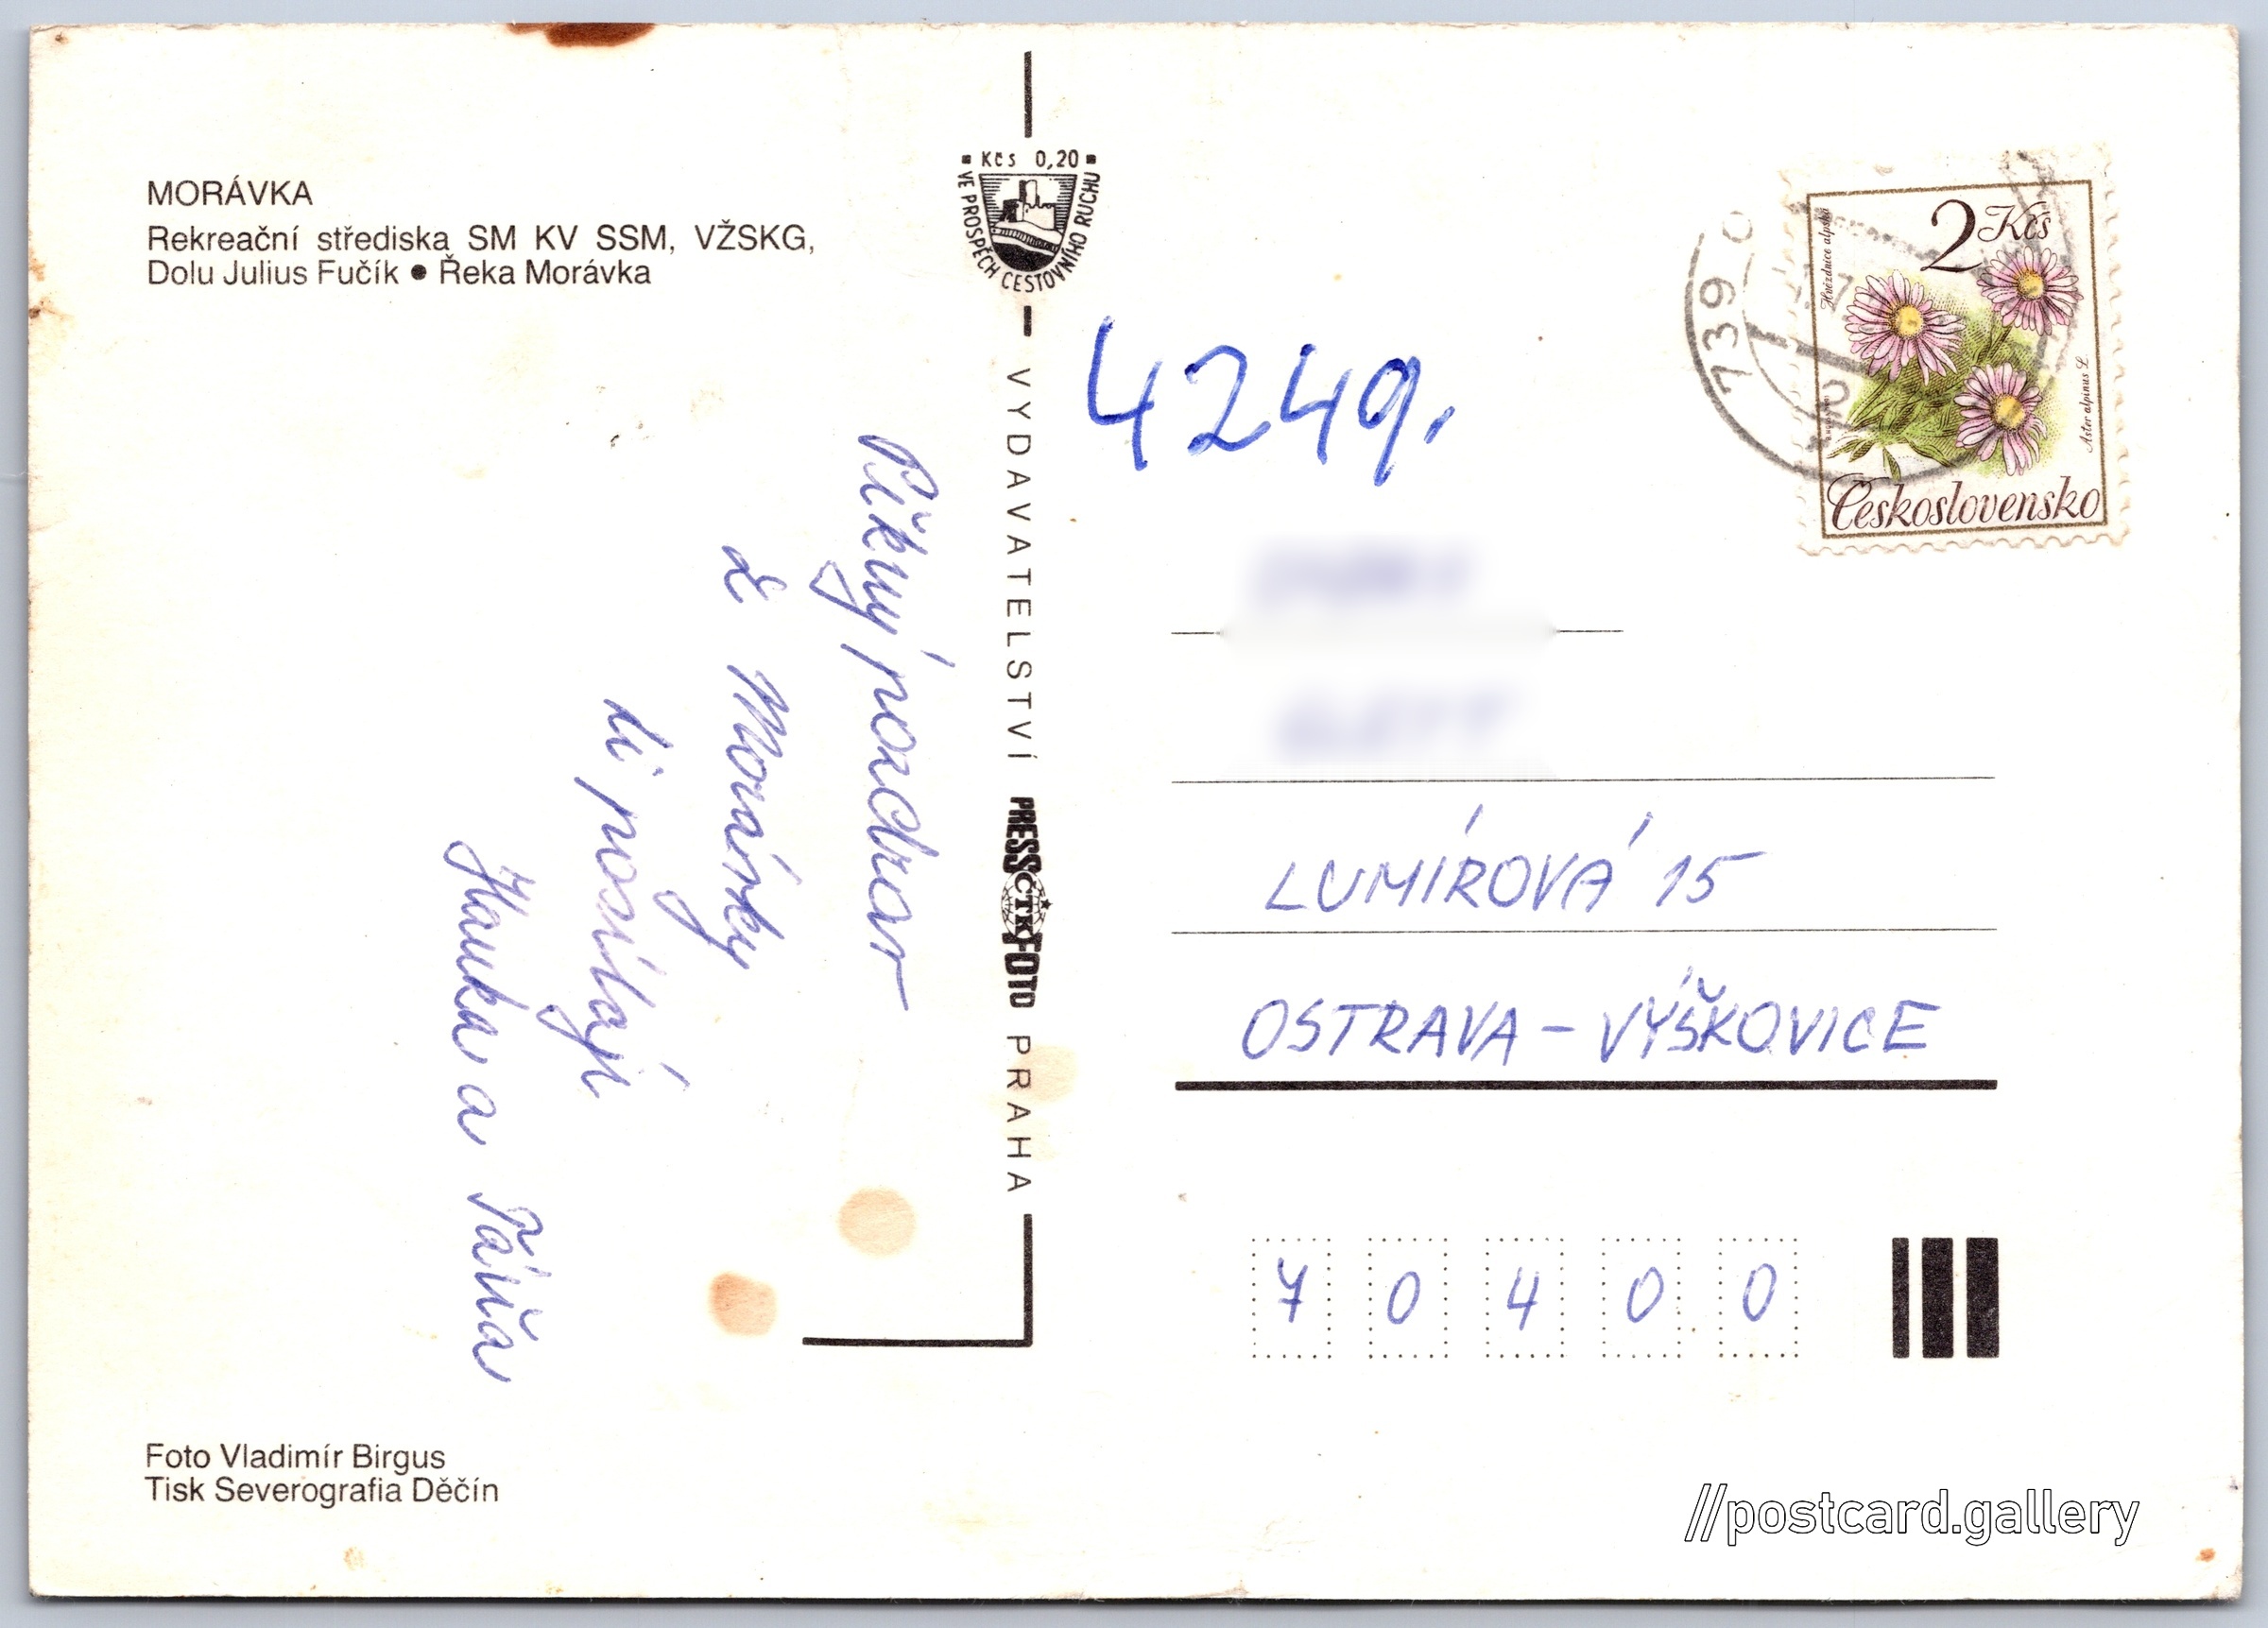 MORÁVKA
Rekreační střediska SM KV SSM, VŽSKG,
Dolu Julius Fučík ● Řeka Morávka
Pěkný pozdrav
z Morávky
ti posílají
Hanka a Táňa
Foto Vladimír Birgus
Tisk Severografia Děčín
Kčs 0,20
VE PROSPĚCH CESTOVNÍHO RUCHU
VYDAVATELSTVÍ PRESSFOTO PRAHA
ČTK
4249.
739 0
2 Kčs
Hvězdnice alpská
Aster alpinus L.
Československo
LUMÍROVÁ 15
OSTRAVA - VÝŠKOVICE
70400
//postcard.gallery